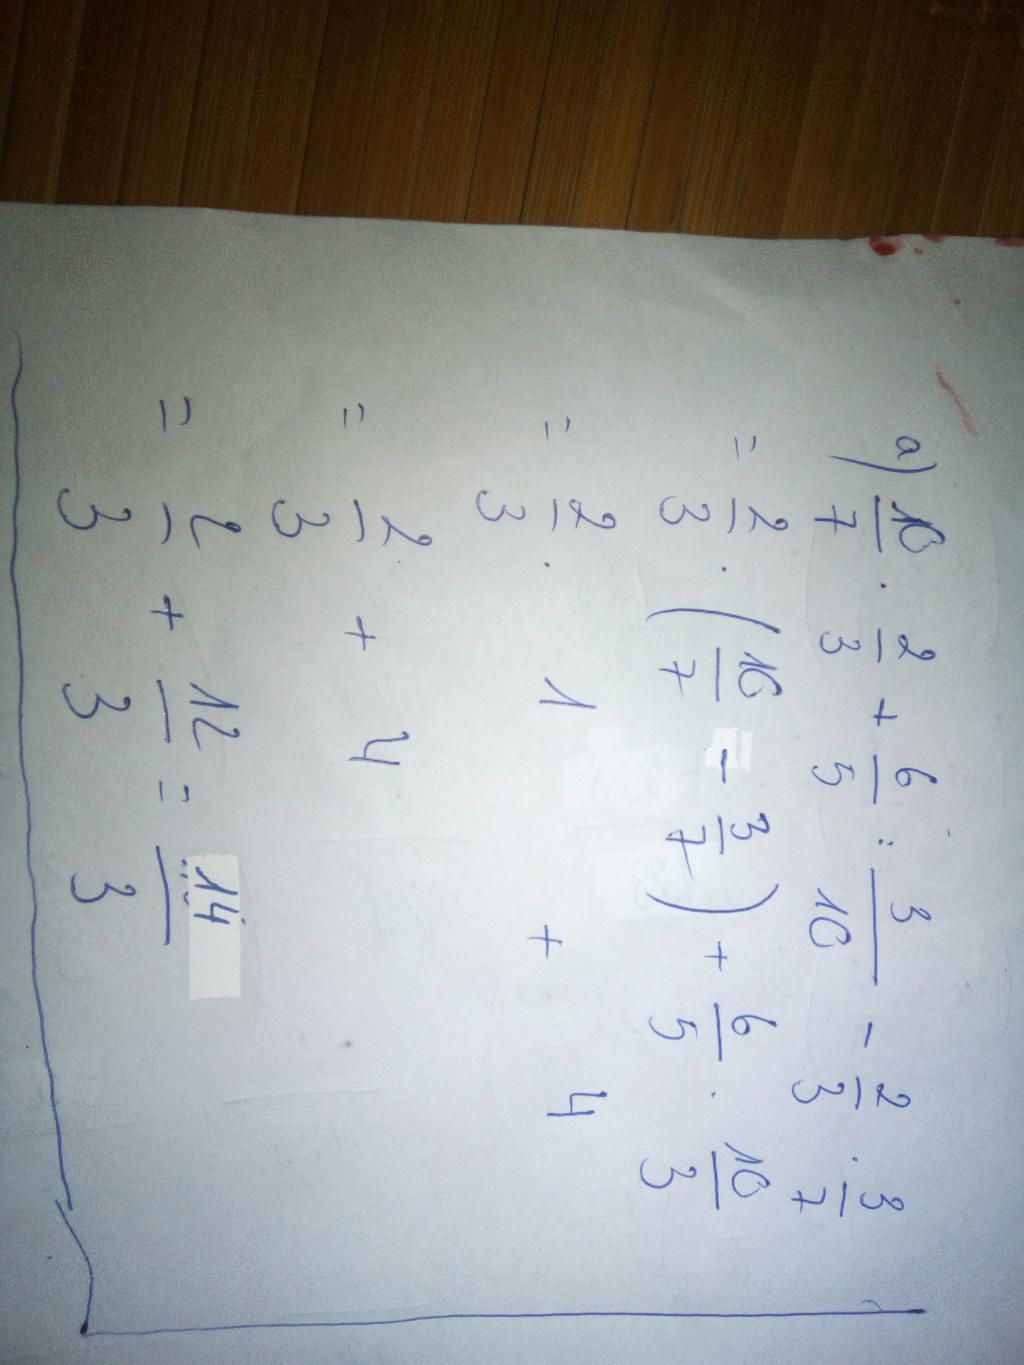 a) 10/7 · 2/3 + 6/5 : 3/10 - 2/3 · 3/7
= 2/3 · (10/7 - 3/7) + 6/5 · 10/3
= 2/3 · 1 + 4
= 2/3 + 4
= 2/3 + 12/3 = 14/3